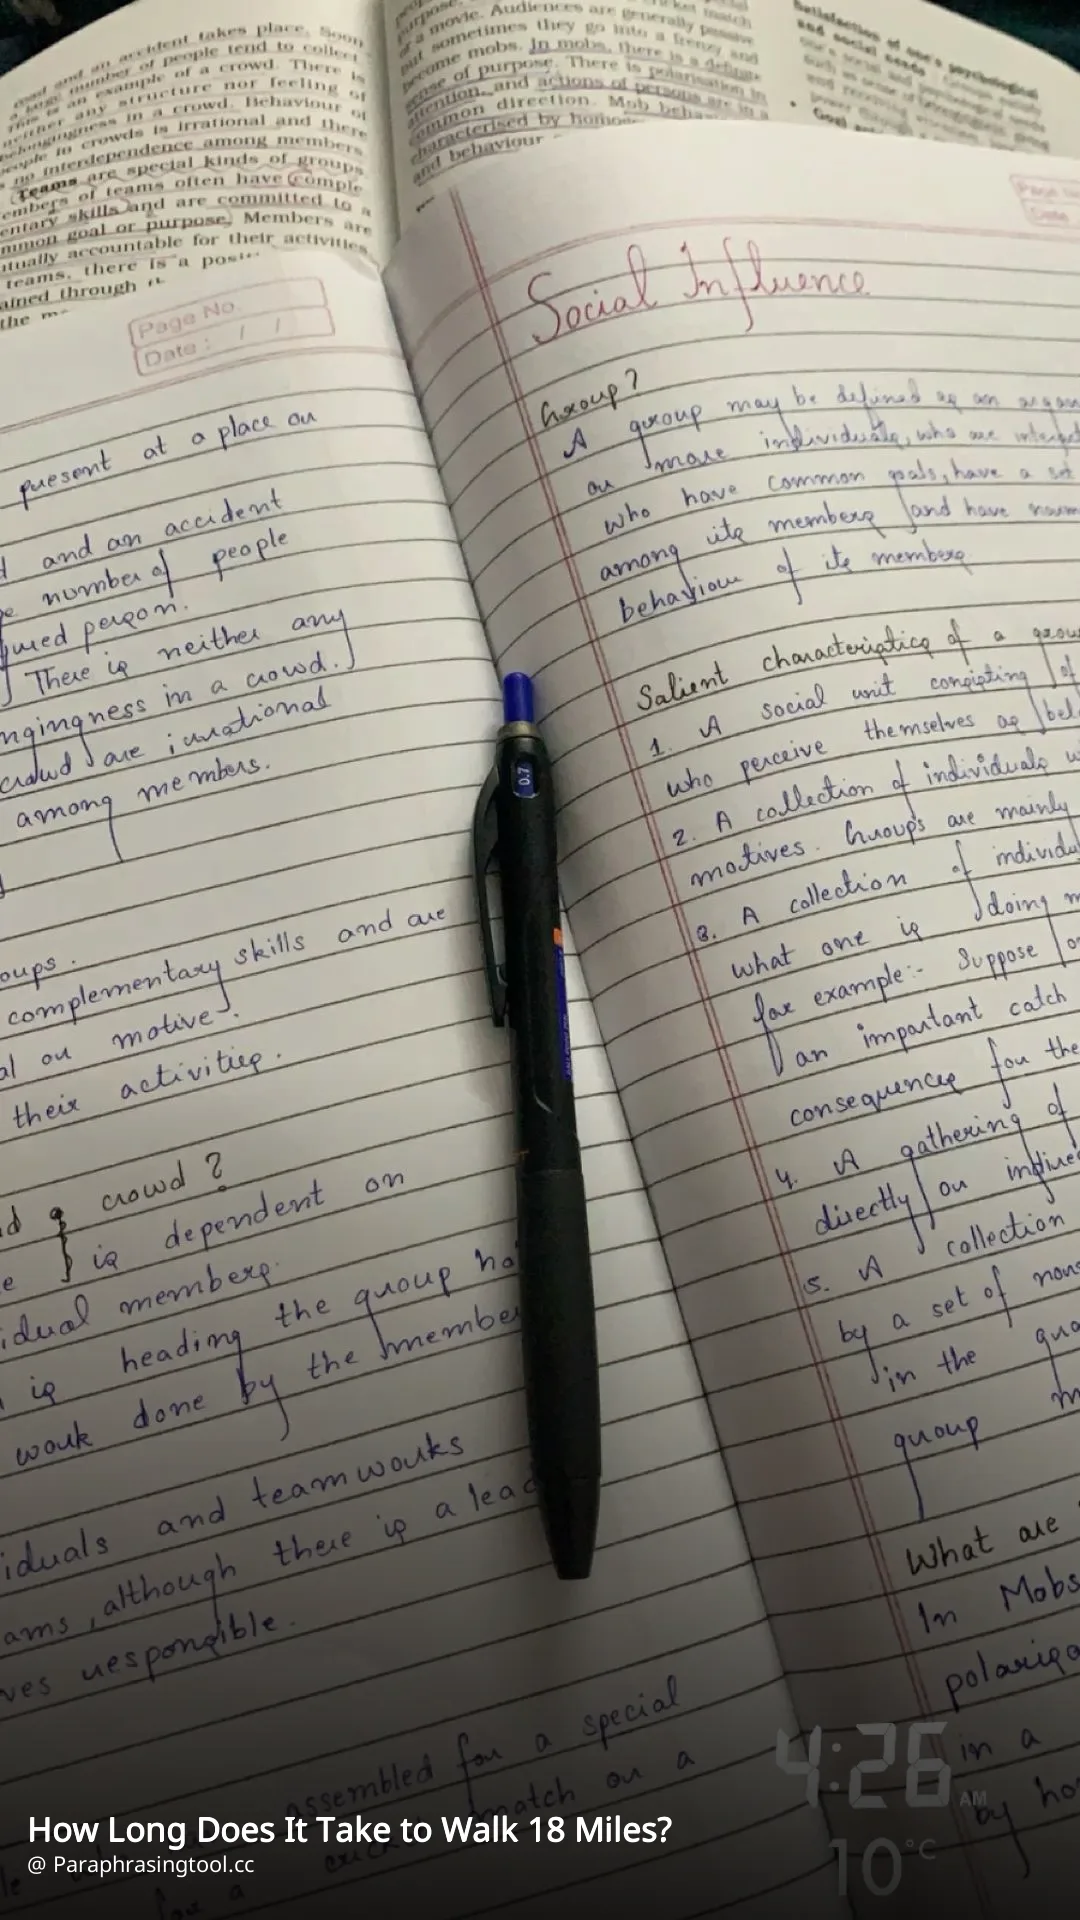 road and an accident takes place. Soon
a large number of people tend to collect.
This is an example of a crowd. There is
neither any structure nor feeling of
belongingness in a crowd. Behaviour of
people in crowds is irrational and there
is no interdependence among members.
Teams are special kinds of groups.
members of teams often have comple
entary skills and are committed to a
mmon goal or purpose. Members are
utually accountable for their activities.
teams, there is a posit
ained through
the m
of a movie. Audiences are generally passive
but sometimes they go into a frenzy and
become mobs. In mobs, there is a definite
sense of purpose. There is polarisation in
attention, and actions of persons are in a
common direction. Mob behav
characterised by homog
and behaviour
Satisfaction of one's psychological
and social needs
Page No.
Date : / /
present at a place or
d and an accident
e number of people
jured person.
There is neither any
ngingness in a crowd.
crowd are irrational
among members.
oups.
complementary skills and are
al or motive.
their activities.
crowd ?
is dependent on
idual members.
is heading the group ha
work done by the member
iduals and team works
ams, although there is a lead
ves responsible.
assembled for a special
cricket match or a
for a
Page No
Date
Social Influence
Group?
A group may be defined as an organ
or more individuals, who are interact
who have common goals, have a set
among its members and have norm
behaviour of its members.
Salient characteristics of a group
1. A social unit consisting of
who perceive themselves as bel
2. A collection of individuals w
motives. Groups are mainly
3. A collection of individu
what one is doing m
for example:- Suppose
an important catch
consequences for the
4. A gathering of
directly or indirec
5. A collection
by a set of norms
in the gro
group m
What are
In Mobs
polarisa
in a
by ho
0.7
4:26 AM
10°C
How Long Does It Take to Walk 18 Miles?
@ Paraphrasingtool.cc